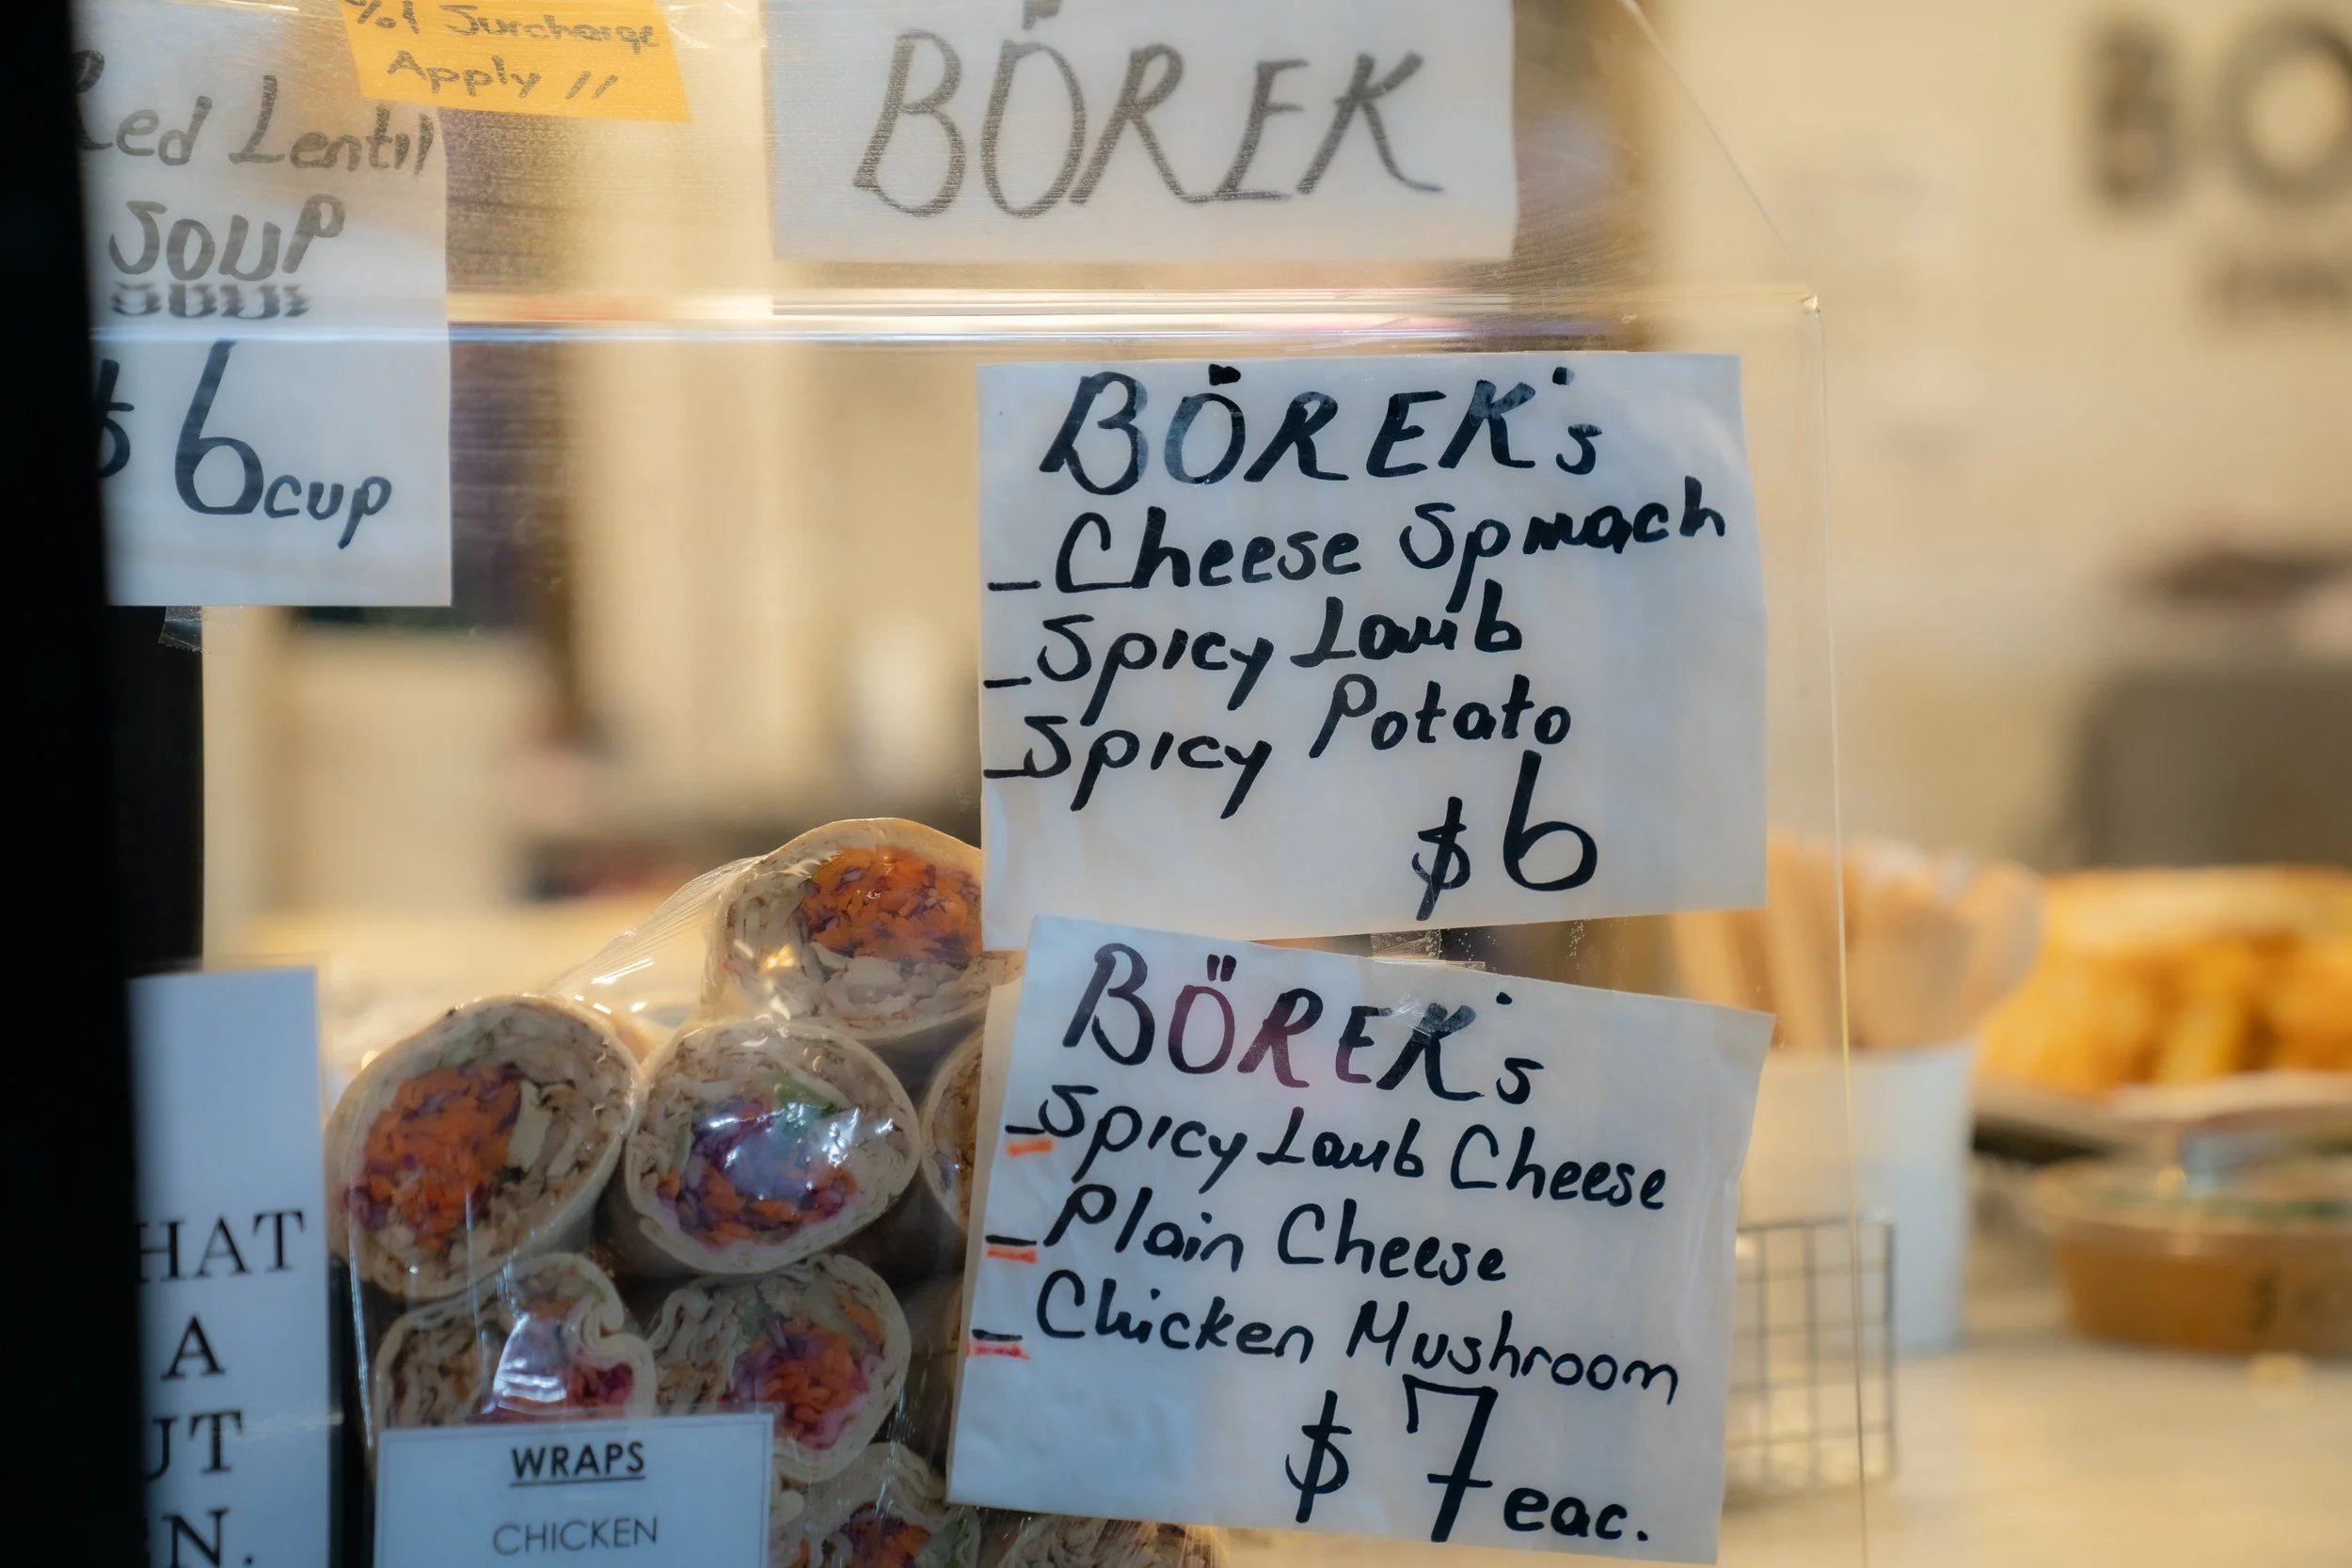 %1 Surcharge
Apply //
Red Lentil
SOUP
$6 cup
BÖREK
BO
BÖREK's
_ Cheese Spinach
_ Spicy Lamb
_ Spicy Potato
$6
BÖREK's
_ Spicy Lamb Cheese
_ Plain Cheese
_ Chicken Mushroom
$7 eac.
HAT
A
UT
N.
WRAPS
CHICKEN